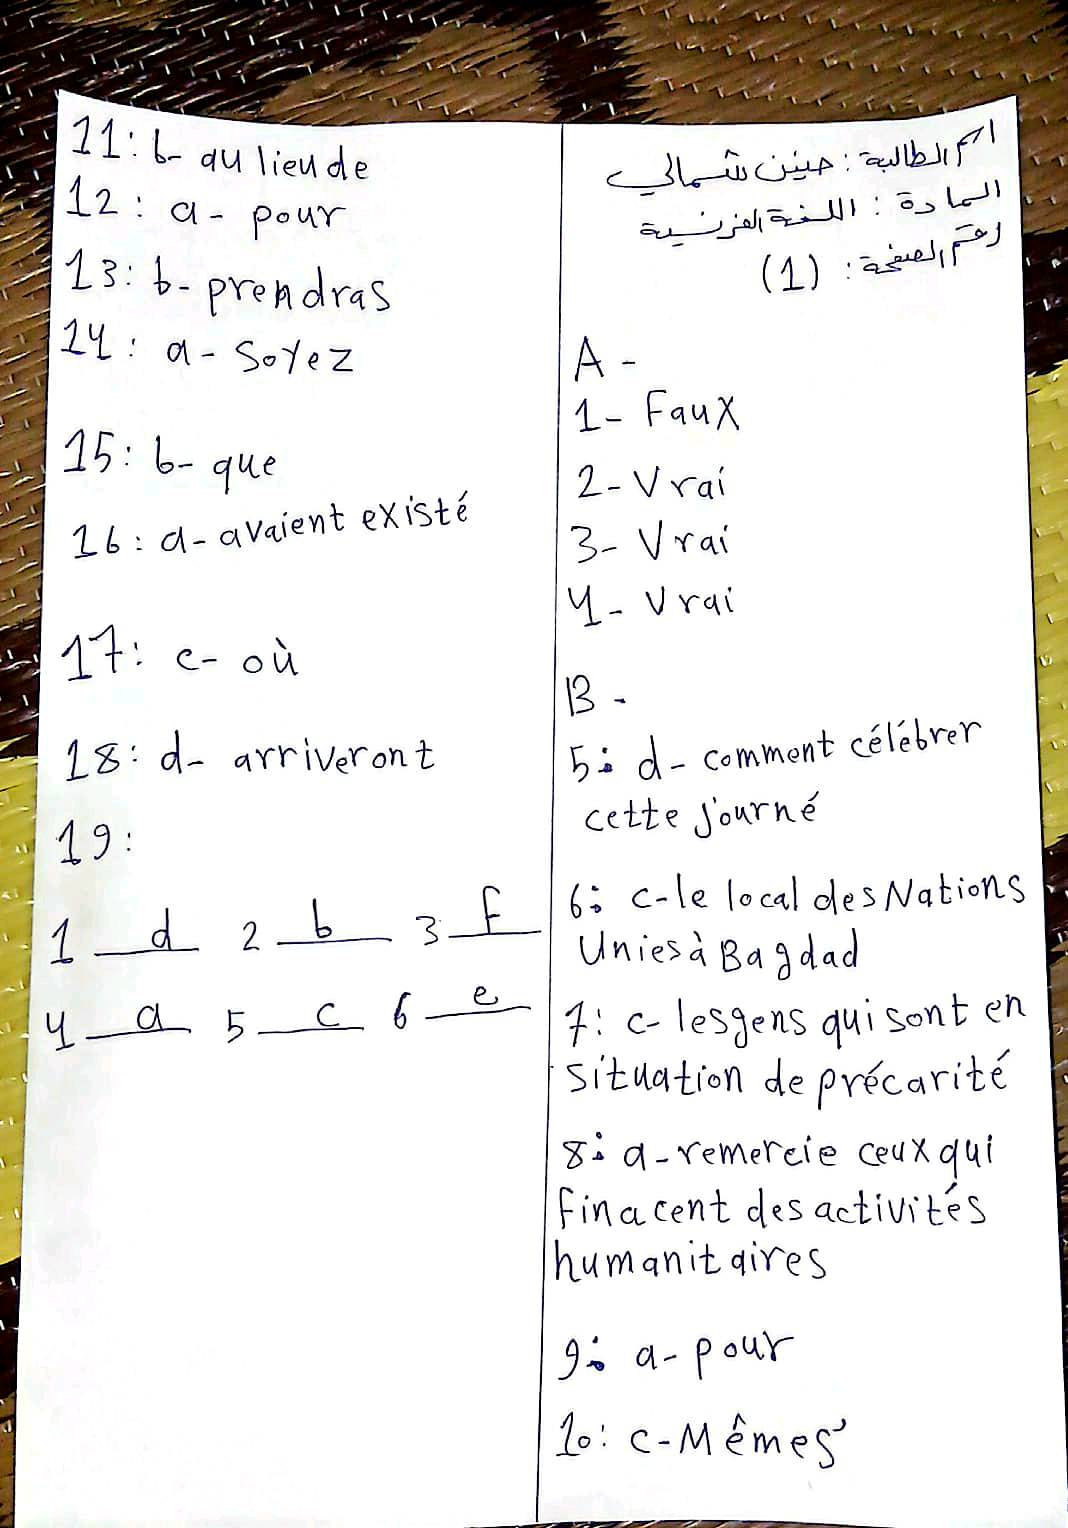 اسم الطالبة: حنين شمالي
المادة: اللغة الفرنسية
رقم الصفحة: (1)
A -
1- Faux
2- Vrai
3- Vrai
4- Vrai
B -
5: d- comment célébrer
cette journé
6: c- le local des Nations
Unies à Bagdad
7: c- les gens qui sont en
situation de précarité
8: a- remercie ceux qui
finacent des activités
humanitaires
9: a- pour
10: c- Mêmes
11: b- au lieu de
12: a- pour
13: b- prendras
14: a- Soyez
15: b- que
16: a- avaient existé
17: c- où
18: d- arriveront
19:
1 d 2 b 3 f
4 a 5 c 6 e